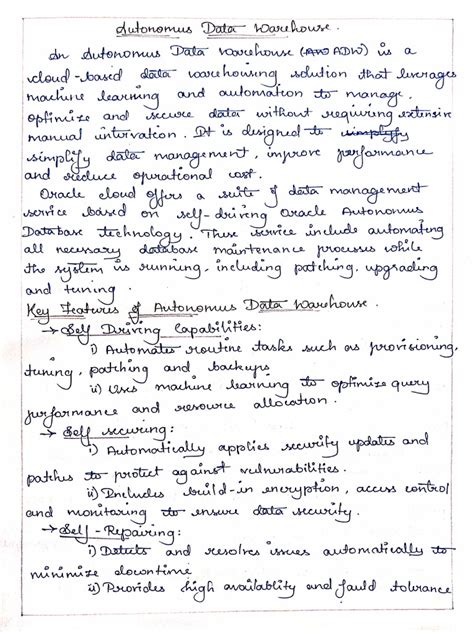 Autonomus Data Warehouse.
An Autonomus Data Warehouse (ADW) is a
cloud-based data warehousing solution that leverages
machine learning and automation to manage,
optimize and secure data without requiring extensive
manual intervation. It is designed to simplyfy
simplify data management, improve performance
and reduce operational cost.
Oracle cloud offers a suite of data management
service based on self-driving Oracle Autonomus
Database technology. These service include automating
all necessary database maintenance processes while
the system is running, including patching, upgrading
and tuning.
Key Features of Autonomus Data Warehouse.
→ Self Driving Capabilities:
i) Automates routine tasks such as provisioning,
tuning, patching and backups
ii) Uses machine learning to optimize query
performance and resource allocation.
→ Self securing:
i) Automatically applies security updates and
patches to protect against vulnurabilities.
ii) Includes build-in encryption, access control
and monitoring to ensure data security.
→ Self-Repairing:
i) Detects and resolves issues automatically to
minimize downtime
ii) Provides high availablity and fauld tolerance